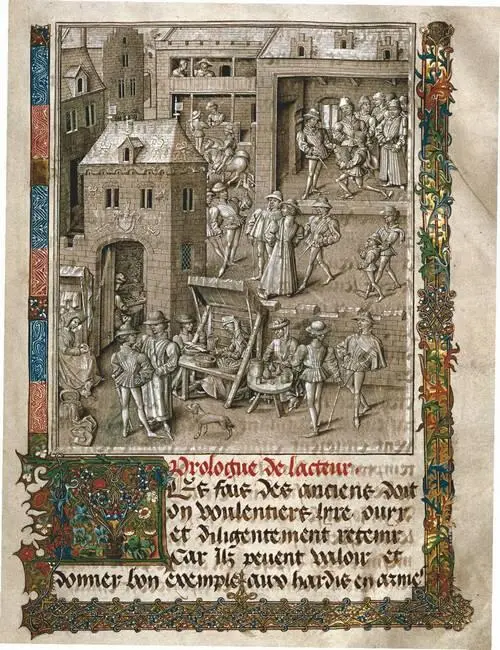 Prologue de lacteur
LEs fais des anciens doit
on voulentiers lyre ouyr
et diligentement retenir
Car Ilz peuent valoir et
donner bon exemple aux hardis en armes